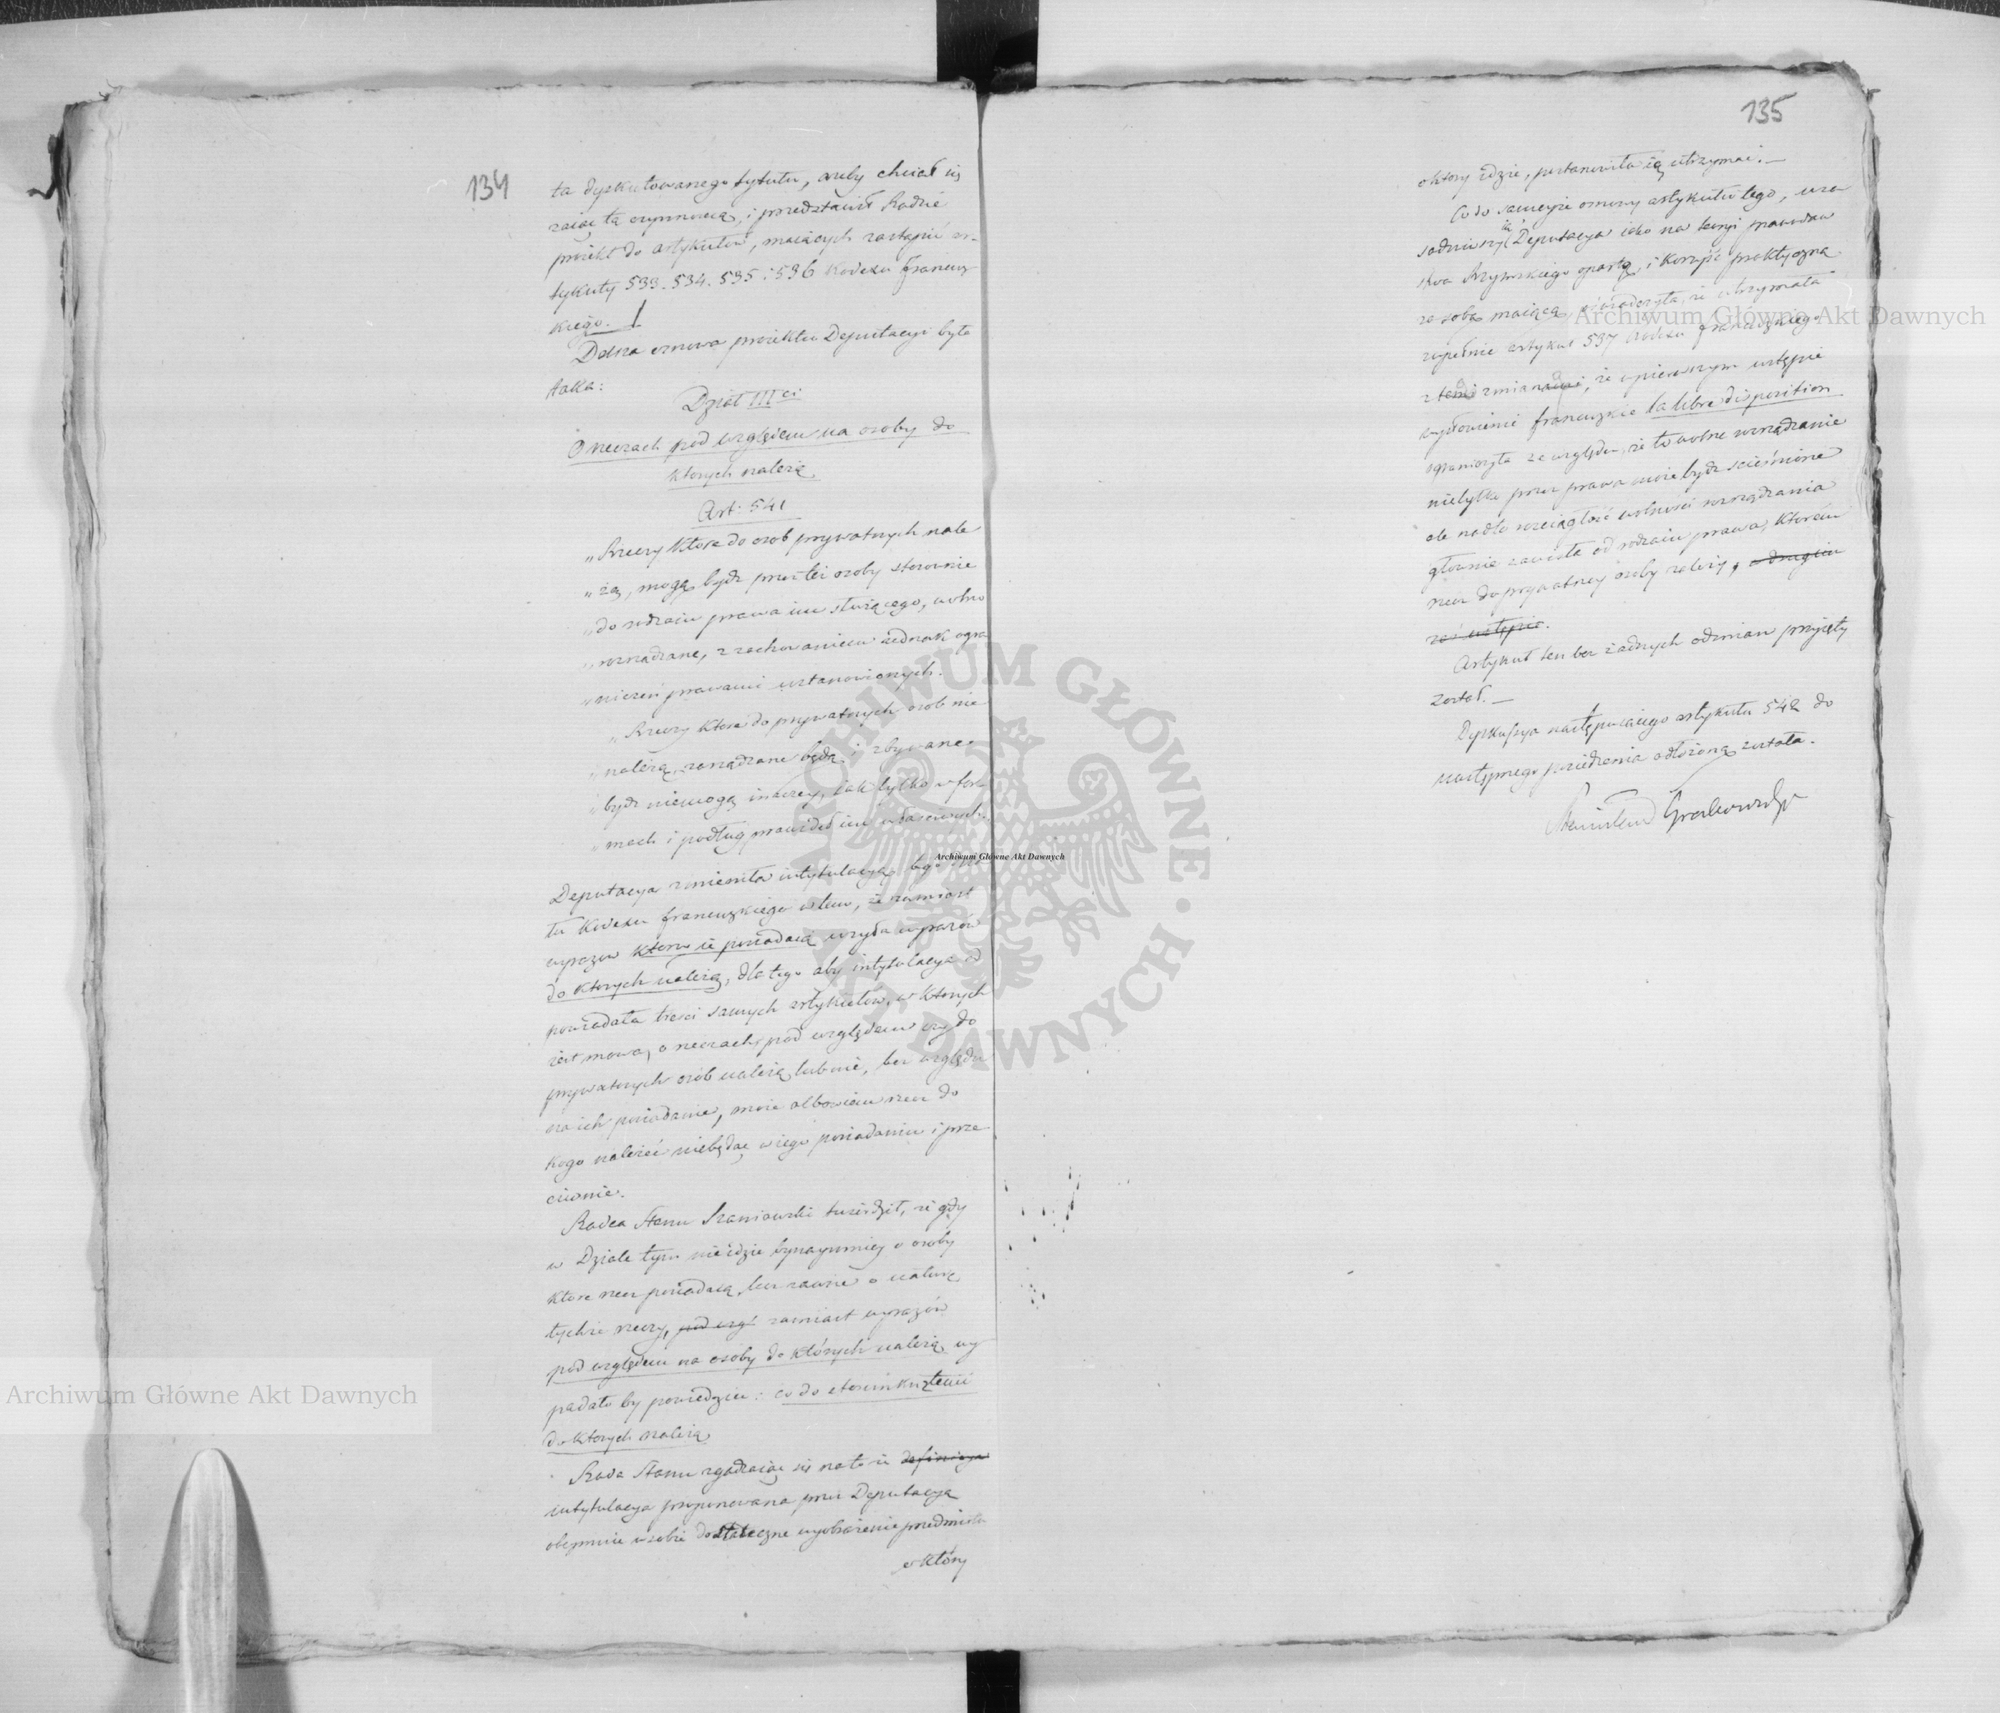 134
ta dyskutowanego tytułu, ażeby chciał się
zająć tą czynnością, i przedstawił Radzie
proiekt do artykułów, maiących zastąpić ar-
tykuły 533. 534. 535. i 536 Kodexu francuz
kiego.
Dalsza osnowa proiektu Deputacyi była
taka:
Dział IIIci
O rzeczach pod względem na osoby do
ktorych należą.
Art: 541
„Rzeczy ktore do osob prywatnych nale
„żą, mogą bydź przez też osoby stosownie
„do rodzaiu prawa im służącego, wolno
„rozrządzane, z zachowaniem iednak ogra
„niczeń prawami ustanowionych.
„Rzeczy ktore do prywatnych osob nie
„należą, zarządzane będą i zbywane
„bydź niemogą inaczey, iak tylko w for
„mach i podług prawideł im właściwych.
Deputacya zmieniła intytulacyą tego
tu Kodexu francuzkiego w tem, że zamiast
wyrazow ktore ie posiadaią użyła wyrazów
do ktorych należą, dla tego aby intytulacya od
powiadała treści samych artykułów, w ktorych
iest mowa, o rzeczach pod względem czy do
prywatnych osób należą lub nie, bez względu
na ich posiadanie, może albowiem rzecz do
kogo należeć niebędąc w iego posiadaniu i prze
ciwnie.
Radca Stanu Szaniawski twierdził, że gdy
w Dziale tym nieidzie bynaymniey o osoby
ktore rzecz posiadaią, lecz raznie o naturę
tychże rzeczy, pod wzgl zamiast wyrazów
pod względem na osoby do których należą wy
padało by powiedzieć: co do stosunku z temi
do ktorych należą.
Rada Stanu zgadzaiąc się na to że definicya
intytulacya proponowana przez Deputacyą
obeymuie w sobie dostateczne wyobrażenie przedmiotu
o który
135
o ktory idzie, postanowiła ią utrzymać. —
Co do samejże osnowy artykułu tego, uza
sadniwszy ią Deputacya iako na teoryi prawodaw
stwa Rzymskiego opartą, i korzyść praktyczną
za sobą maiącą, oświadczyła, że utrzymała
zupełnie artykuł 537 Kodexu francuzkiego
z tą zmianą, że w pierwszym ustępie
wysłowienie francuzkie la libre disposition
ograniczyła ze względu, że to wolne rozrządzanie
nietylko przez prawa może bydź scieśnione
ale nadto rozciągłość wolności rozrządzania
głownie zawisła od rodzaiu prawa, ktorem
rzecz do prywatney osoby należy, w drugim
zaś ustępie.
Artykuł ten bez żadnych odmian przyięty
został. —
Dyskussya następuiącego artykułu 542 do
następnego posiedzenia odłożoną została.
Stanisław Grabowski
Archiwum Główne Akt Dawnych
Archiwum Główne Akt Dawnych
Archiwum Główne Akt Dawnych
ARCHIWUM GŁÓWNE AKT DAWNYCH